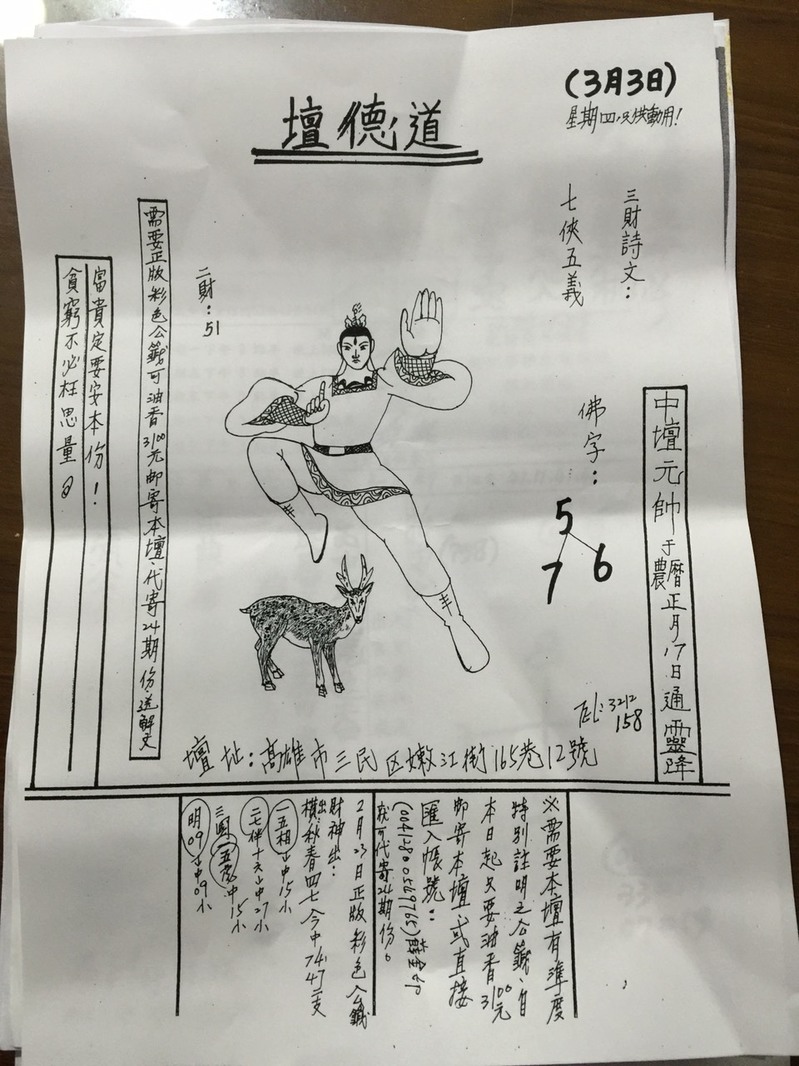 (3月3日)
星期四,只供動用!
道德壇
三財詩文:
七俠五義
佛字:
5
7 6
中壇元帥于農曆正月17日通靈降
二財:51
需要正版彩色公籤可油香3100元邮寄本壇、代寄24期份,送解文
富貴定要安本份!
貪窮不必枉思量。
TEL:3212
158
壇址:高雄市三民区嫩江街165巷12號
※需要本壇有準度
特別註明之公籤、自
本日起只要油香3100元
邮寄本壇或直接
匯入帳號:
就可代寄24期份。
2月23日正版彩色公籤
財神出:
橫出秋春四七今中74.47二支
一五相 中15小
二七伴十六 中27小
三國一五虎 中15小
明09 中09小